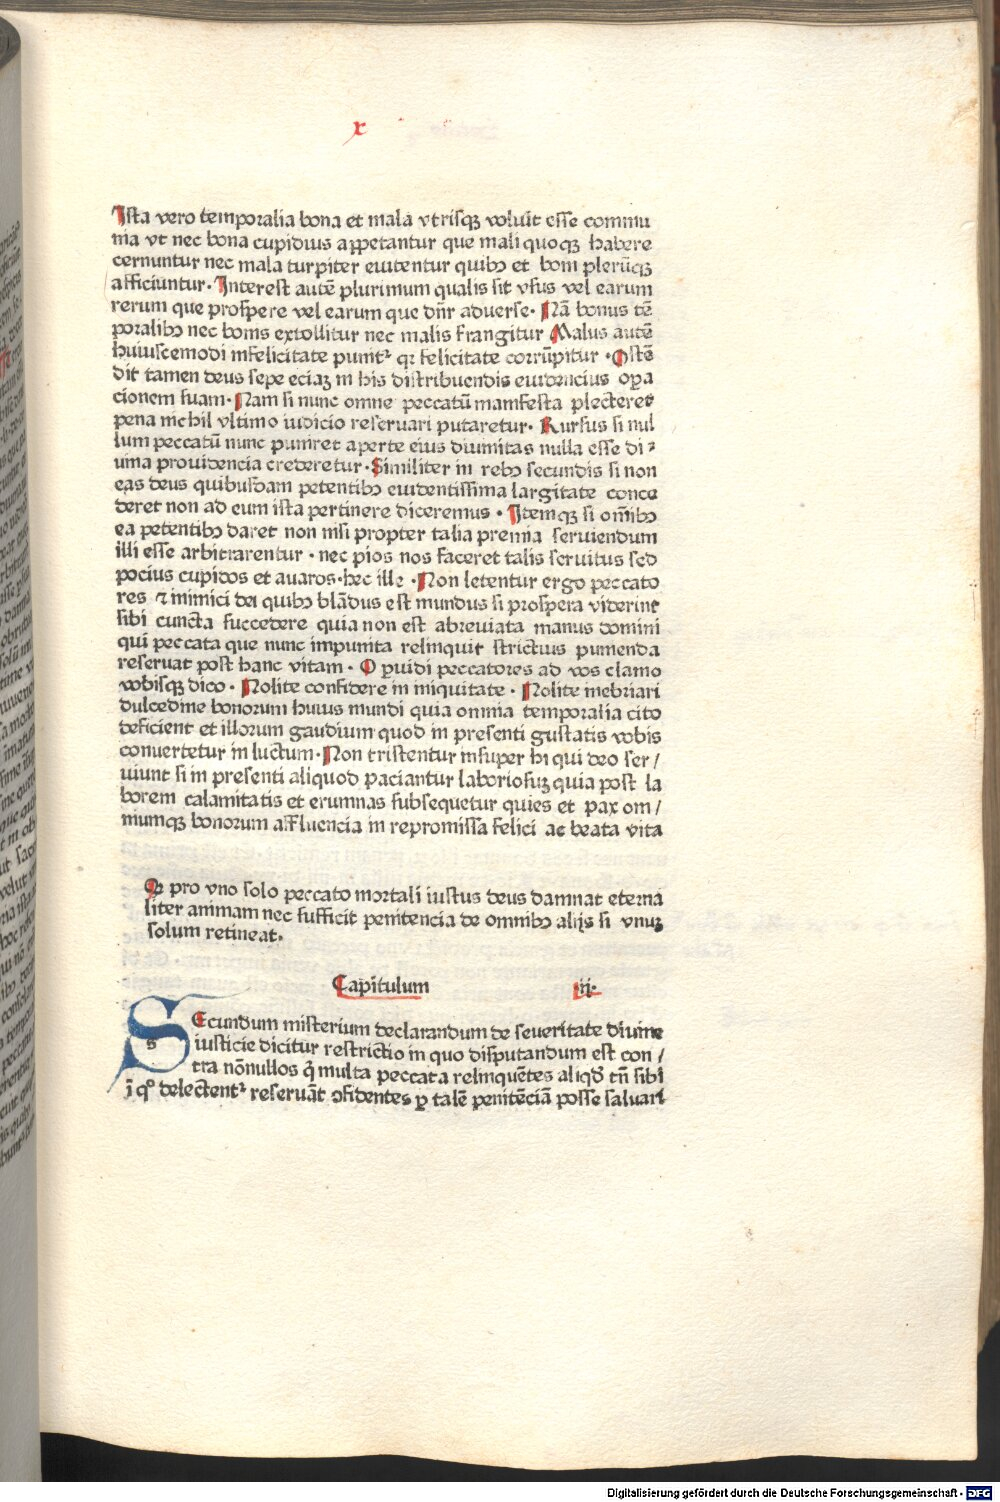 x
Ista vero temporalia bona et mala vtrisqꝫ voluit esse commu
nia vt nec bona cupidius appetantur que mali quoqꝫ habere
cernuntur nec mala turpiter euitentur quibꝰ et boni plerūqꝫ
afficiuntur. Interest autē plurimum qualis sit vsus vel earum
rerum que prospere vel earum que dn̄r aduerse. Nā bonus tē
poralibꝰ nec bonis extollitur nec malis frangitur Malus autē
huiuscemodi infelicitate punitᷣ qꝛ felicitate corrūpitur . Ostē
dit tamen deus sepe eciaꝫ in his distribuendis euidencius opa
cionem suam. Nam si nunc omne peccatū manifesta plecteret
pena nichil vltimo iudicio reseruari putaretur. Rursus si nul
lum peccatū nunc puniret aperte eius diuinitas nulla esse di⸗
uina prouidencia crederetur. Similiter in rebꝰ secundis si non
eas deus quibusdam petentibꝰ euidentissima largitate conce
deret non ad eum ista pertinere diceremus . Itemqꝫ si om̄ibꝰ
ea petentibꝰ daret non nisi propter talia premia seruiendum
illi esse arbitrarentur . nec pios nos faceret talis seruitus sed
pocius cupidos et auaros. hec ille . Non letentur ergo peccato
res ⁊ inimici dei quibꝰ blādus est mundus si prospera viderint
sibi cuncta succedere quia non est abreuiata manus domini
qui peccata que nunc impunita relinquit strictius punienda
reseruat post hanc vitam . O ꝓuidi peccatores ad vos clamo
vobisqꝫ dico . Nolite confidere in iniquitate . Nolite inebriari
dulcedine bonorum huius mundi quia omnia temporalia cito
deficient et illorum gaudium quod in presenti gustatis vobis
conuertetur in luctum. Non tristentur insuper hi qui deo ser/
uiunt si in presenti aliquod paciantur laboriosuꝫ quia post la
borem calamitatis et erumnas subsequetur quies et pax om/
niumqꝫ bonorum affluencia in repromissa felici ac beata vita
Qꝛ pro vno solo peccato mortali iustus deus damnat eterna
liter animam nec sufficit penitencia de omnibꝰ alijs si vnuꝫ
solum retineat.
Capitulum .ij.
SEcundum misterium declarandum de seueritate diuine
iusticie dicitur restrictio in quo disputandum est con/
tra nōnullos q̄ multa peccata relinquētes aliqd̄ tn̄ sibi
ī qͦ delectentᷣ reseruāt ꝯfidentes ꝑ talē penitēciā posse saluari
Digitalisierung gefördert durch die Deutsche Forschungsgemeinschaft - DFG